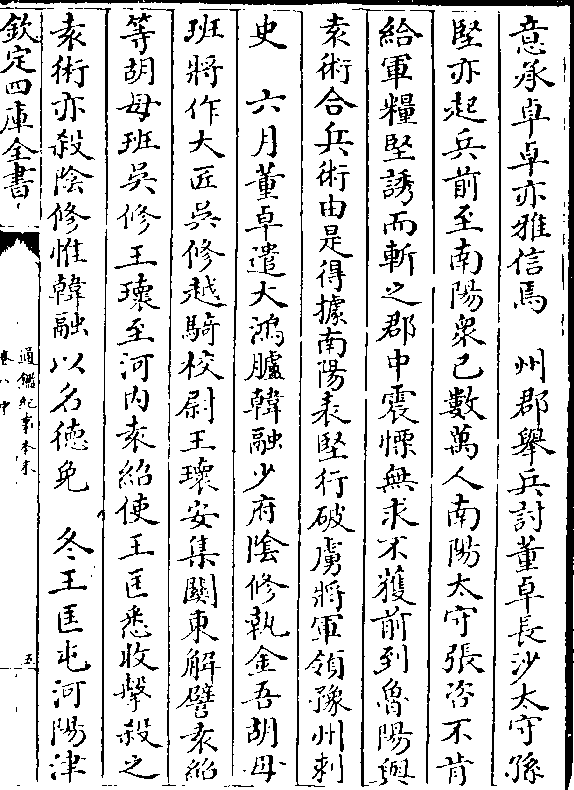 意承卓卓亦雅信焉　州郡舉兵討董卓長沙太守孫
堅亦起兵前至南陽衆已數萬人南陽太守張咨不肯
給軍糧堅誘而斬之郡中震慄無求不獲前到魯陽與
袁術合兵術由是得據南陽表堅行破虜將軍領豫州刺
史　六月董卓遣大鴻臚韓融少府陰修執金吾胡母
班將作大匠吳修越騎校尉王瓌安集關東解譬袁紹
等胡母班吳修王瓌至河内袁紹使王匡悉收擊殺之
袁術亦殺陰修惟韓融以名德免　冬王匡屯河陽津
欽定四庫全書
通鑑紀事本末
卷八中
五